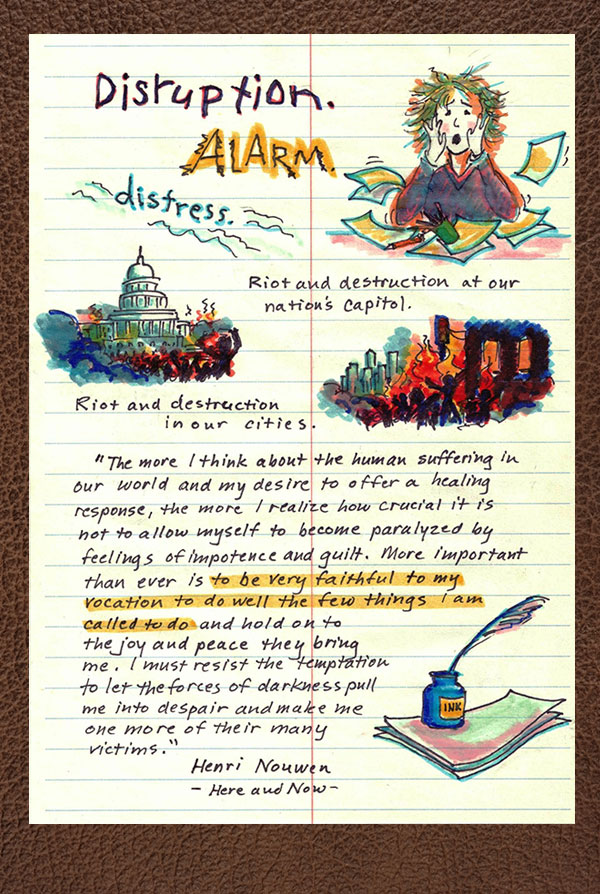 Disruption.
ALARM.
distress.
Riot and destruction at our
nation's capitol.
Riot and destruction
in our cities.
"The more I think about the human suffering in
our world and my desire to offer a healing
response, the more I realize how crucial it is
not to allow myself to become paralyzed by
feelings of impotence and guilt. More important
than ever is to be very faithful to my
vocation to do well the few things I am
called to do and hold on to
the joy and peace they bring
me. I must resist the temptation
to let the forces of darkness pull
me into despair and make me
one more of their many
victims."
INK
Henri Nouwen
- Here and Now -